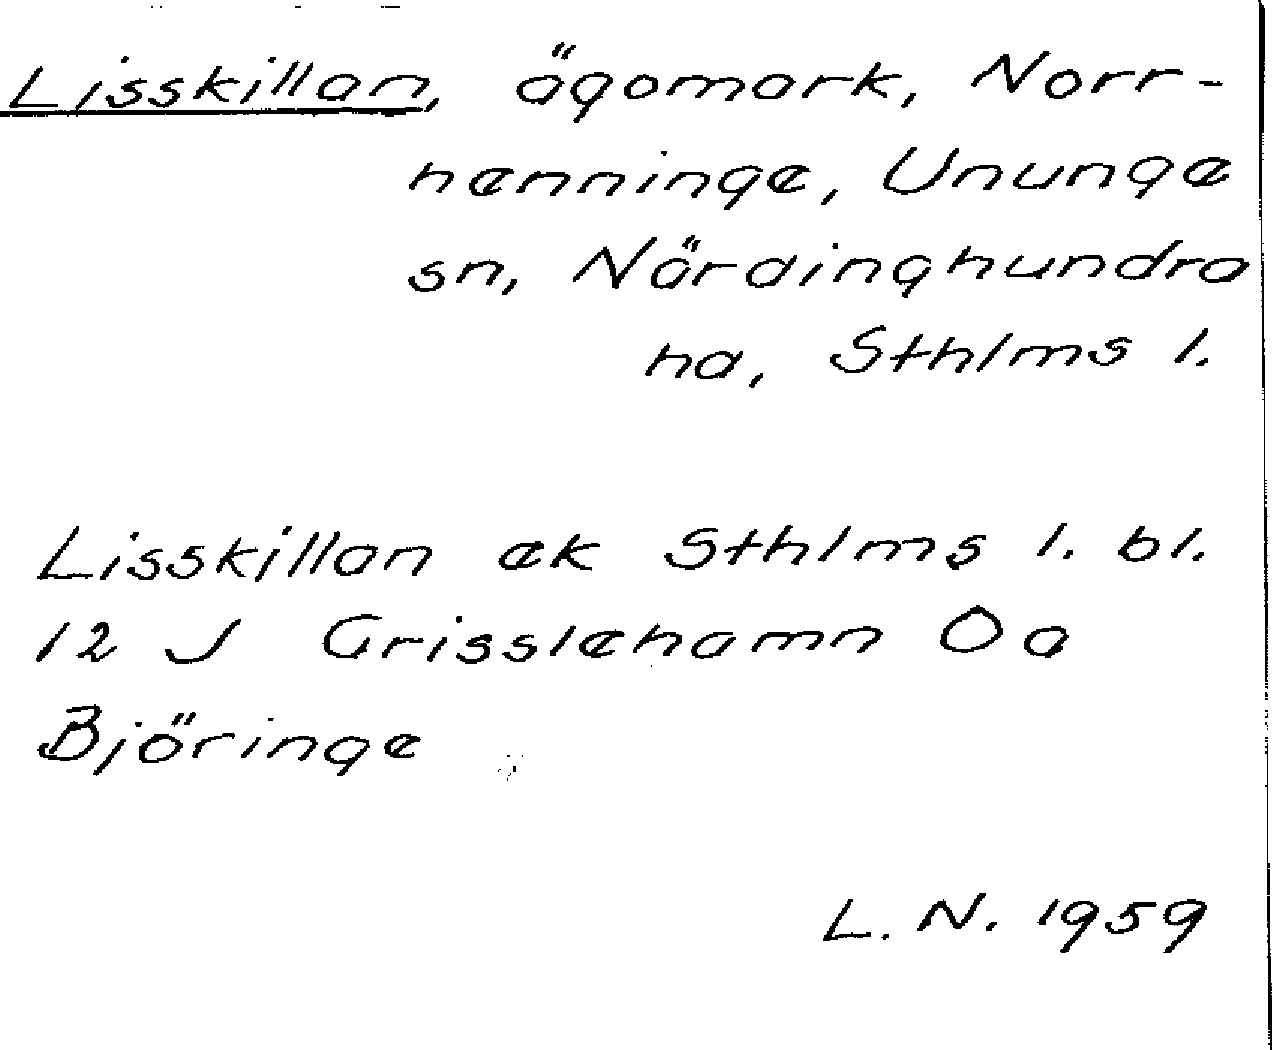 Lisskillan, ägomark, Norr-
henninge, Ununge
sn, Närdinghundra
hd, Sthlms l.
Lisskillan ek Sthlms l. bl.
12 J Grisslehamn Oa
Björinge
L. N. 1959